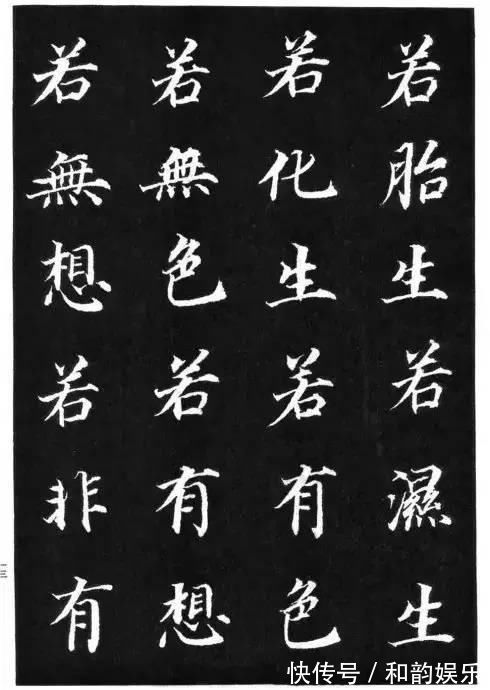 若胎生若濕生
若化生若有色
若無色若有想
若無想若非有
二三
快传号/和韵娱乐